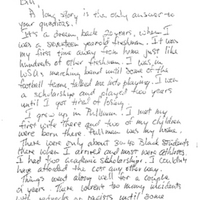 Bill,
A long story is the only answer to
your question.
It's a dream, back 20 years, when I
was a seventeen year old freshman. It was
my first time away from home just like
hundreds of other freshmen. I was in
WSU's marching band until some of the
football team talked me into playing. I won
a scholarship and played two years
until I got tired of losing.
I grew up in Pullman. I met my
first wife there and two of my children
were born there. Pullman was my home.
There were only about 30-40 Black students
there when I arrived and most were athletes.
I had two academic scholarships. I couldn't
have attended the CC or any other way.
Things went along well for a couple
of years. There weren't too many incidents
with rednecks or racists until some